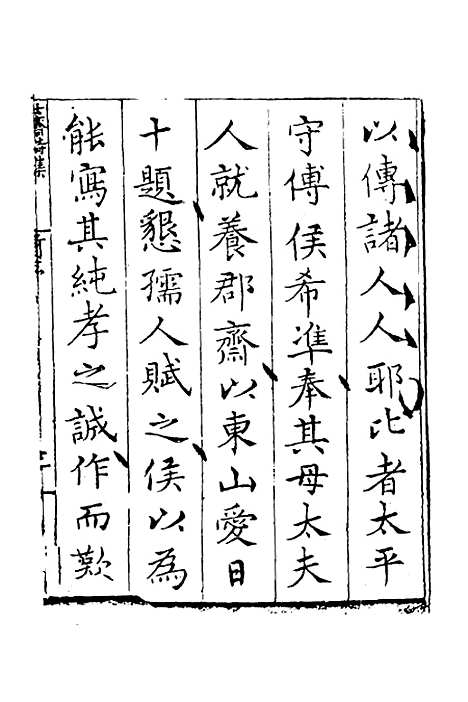 以傳諸人人耶比者太平
守傅侯希準奉其母太夫
人就養郡齋以東山愛日
十題懇孺人賦之侯以為
能寫其純孝之誠作而歎